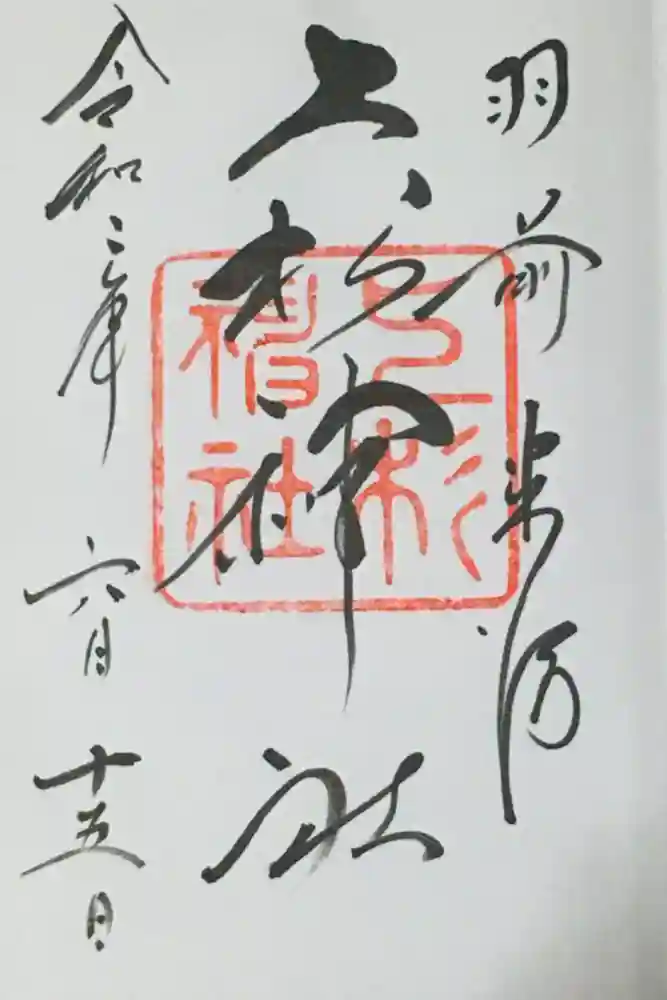 羽前米沢
上杉神社
上杉
神社
令和二年 六月十五日